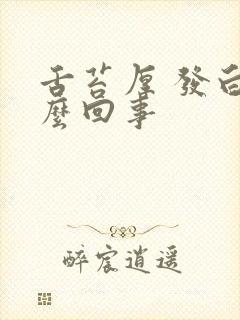 舌苔厚 發白
麼回事
醉宸逍遥